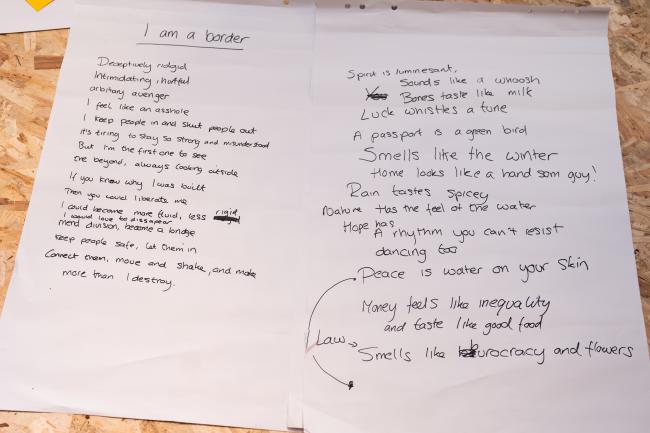 I am a border
Deceptively ridgid
Intimidating, hurtful
arbitary avenger
I feel like an asshole
I keep people in and shut people out
it's tiring to stay so strong and misunderstood
But I'm the first one to see
the beyond, always looking outside
If you knew why I was built
Then you could liberate me
I could become more fluid, less rigid
I would love to dissapear
mend division, become a bridge
Keep people safe, let them in
Connect them, move and shake, and make
more than I destroy.
Spirit is luminesant,
Sounds like a whoosh
Bones taste like milk
Luck whistles a tune
A passport is a green bird
Smells like the winter
Home looks like a hand som guy!
Rain tastes spicey
Nature Has the feel of the water
Hope has
A rhythm you can't resist
dancing too
Peace is water on your skin
Money feels like inequality
and taste like good food
Law →
Smells like burocracy and flowers